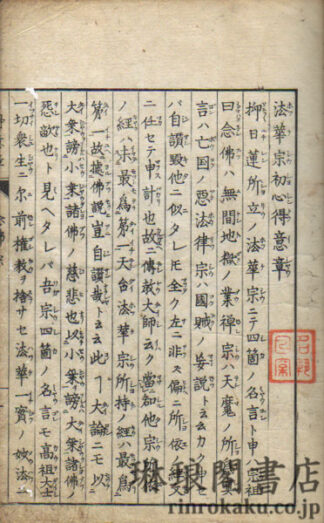 法華宗初心得意章
抑日蓮所立ノ法華宗ニテ四箇ノ名言ト申ハ宗祖
曰念佛ハ無間地極ノ業禪宗ハ天魔ノ所
言ハ亡国ノ惡法律宗ハ國賊ノ妄説ト云云カク申セ
バ自讃毀他ニ似タレモ全ク左ニ非ス偏ニ所依經文
ニ任セテ申計也故ニ傳教大師云ク當知他宗所
ノ經ハ未最爲第一天台法華宗所持ノ經ハ最爲
第一故據佛説豈自讃哉ト云云此ノ大論ニモ以
大乗謗小乗諸佛ノ慈悲也以小乗謗大乗諸佛
惡敵也ト見ヘタレバ吾宗四箇ノ名言モ高祖大士
一切衆生ニ尓前權教ヲ捨サセ法華一實ノ妙法ニ
琳琅閣書店
rinrokaku.co.jp